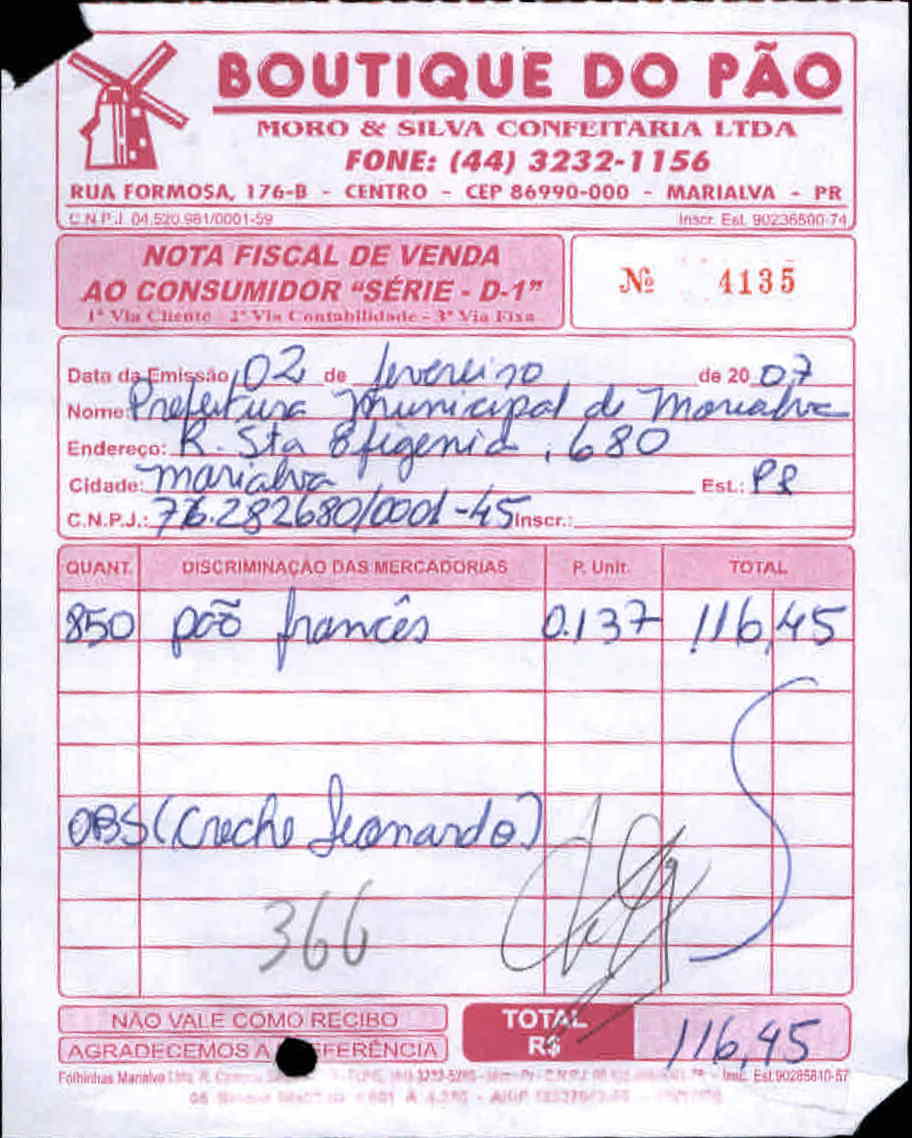 BOUTIQUE DO PÃO
MORO & SILVA CONFEITARIA LTDA
FONE: (44) 3232-1156
RUA FORMOSA, 176-B - CENTRO - CEP 86990-000 - MARIALVA - PR
C.N.P.J. 04.520.981/0001-59 Inscr. Est. 90236500-74
NOTA FISCAL DE VENDA
AO CONSUMIDOR "SÉRIE - D-1"
1ª Via Cliente - 2ª Via Contabilidade - 3ª Via Fixa
Nº 4135
Data da Emissão 02 de fevereiro de 20 07
Nome: Prefeitura Municipal de Marialva
Endereço: R. Sta Efigenia, 680
Cidade: Marialva Est.: PR
C.N.P.J.: 76.282680/0001-45 Inscr.:
QUANT. DISCRIMINAÇÃO DAS MERCADORIAS P. Unit. TOTAL
850 pão francês 0.137 116,45
OBS (Creche Leonardo)
366
NÃO VALE COMO RECIBO
AGRADECEMOS A
TOTAL R$ 116,45
Folhinhas Marialva Ltda. Insc. Est. 90285810-57